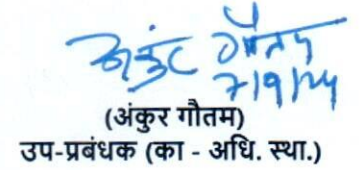 अंकुर गौतम
7/9/24
(अंकुर गौतम)
उप-प्रबंधक (का - अधि. स्था.)